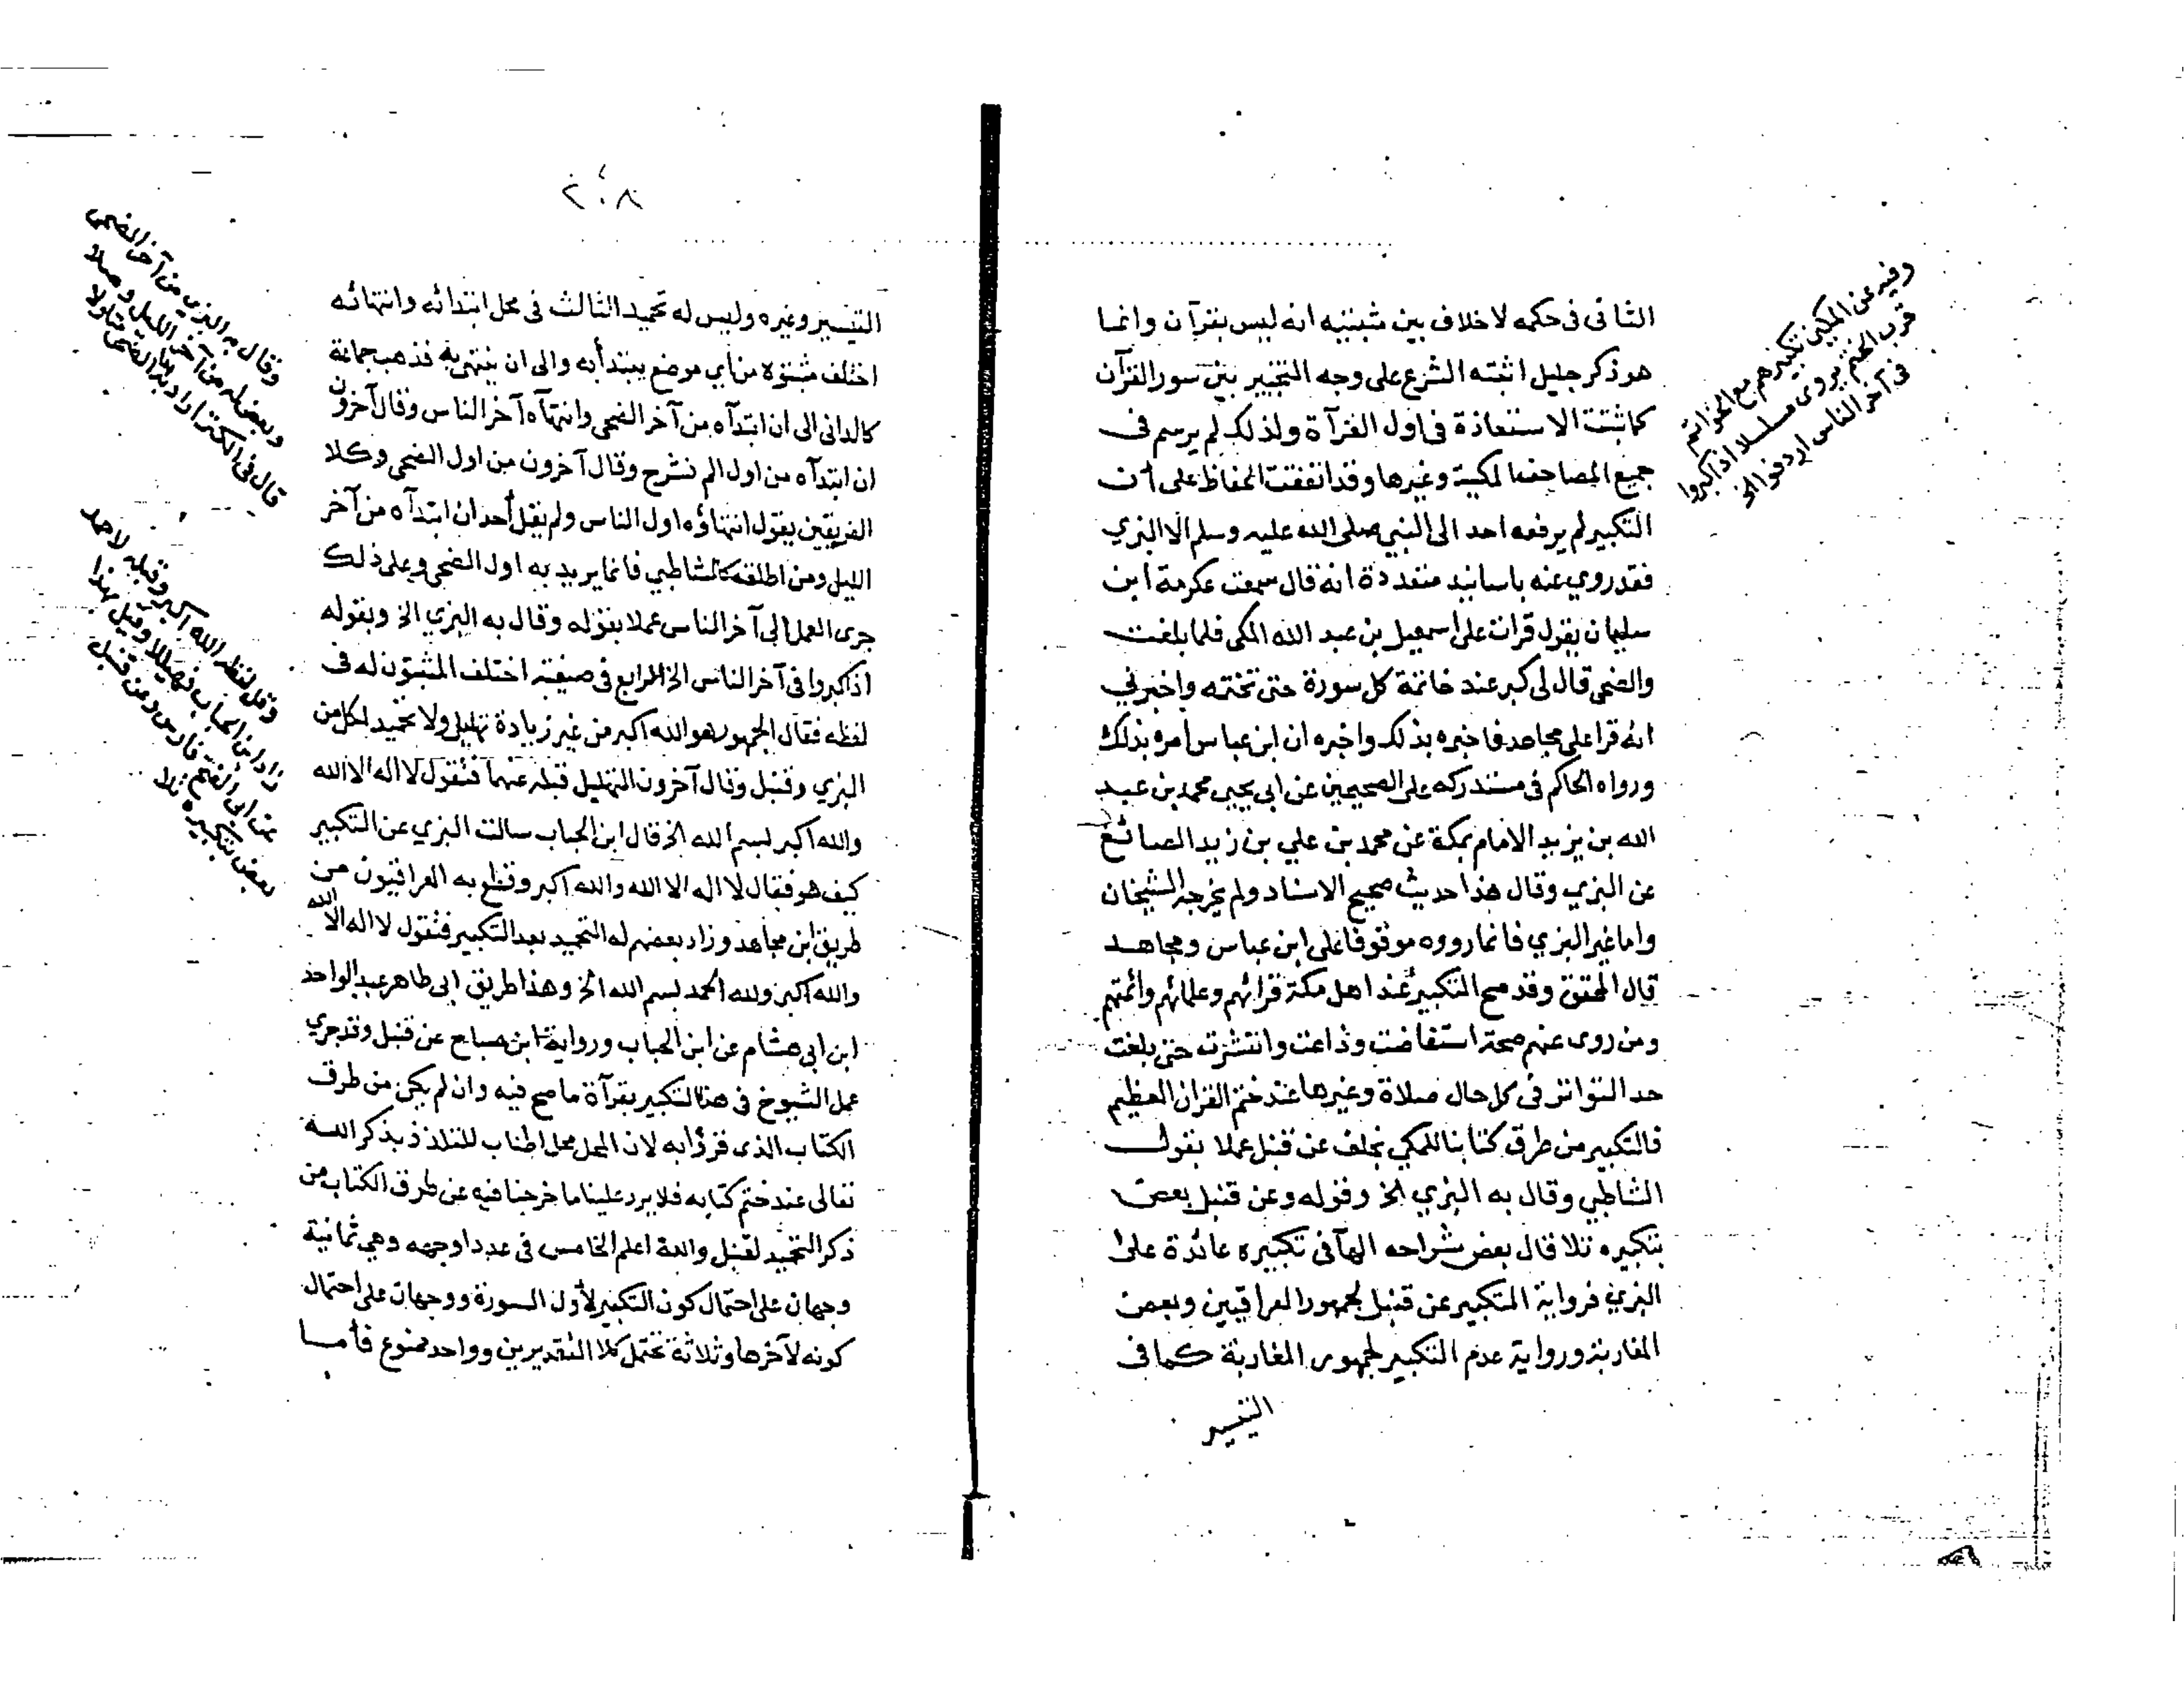 وفيه عن المكين تكبيرهم مع الخواتم
قرب الختم يروى مسلسلا اذا كبروا
فى آخر الناس اردفوا الخ
الثانى فى حكمه لا خلاف بين مثبتيه انه ليس بقرآن وانما
هو ذكر جليل اثبته الشرع على وجه التخيير بين سور القرآن
كما ثبتت الاستعاذة فى اول القرآة ولذلك لم يرسم فى
جميع المصاحف المكية وغيرها وقد اتفقت الحفاظ على أن
التكبير لم يرفعه احد الى النبي صلى الله عليه وسلم الا البزي
فقد روي عنه باسانيد متعددة انه قال سمعت عكرمة ابن
سليمان يقول قرات على اسمعيل بن عبد الله المكى فلما بلغت
والضحى قال لى كبر عند خاتمة كل سورة حتى تختم واخبرني
انه قرا على مجاهد فاخبره بذلك واخبره ان ابن عباس أمره بذلك
ورواه الحاكم فى مستدركه على الصحيحين عن ابى يحيى محمد بن عبد
الله بن يزيد الامام بمكة عن محمد بن علي بن زيد الصائغ
عن البزي وقال هذا حديث صحيح الاسناد ولم يخرجه الشيخان
واما غير البزي فانما رووه موقوفا على ابن عباس ومجاهد
قال المحقق وقد صح التكبير عند اهل مكة قرائهم وعلمائهم وائمتهم
ومن روى عنهم صحة استفاضت وذاعت وانتشرت حتى بلغت
حد التواتر فى كل حال صلاة وغيرها عند ختم القران العظيم
فالتكبير من طرق كتابنا للمكي بخلف عن قنبل عملا بقول
الشاطبي وقال به البزي الخ وقوله وعن قنبل بعض
بتكبيره تلا قال بعض شراحه الهآ فى تكبيره عائدة على
البزي فرواية التكبير عن قنبل لجمهور العراقيين وبعض
المغاربة ورواية عدم التكبير لجمهور المغاربة كما فى
التيسير
٢٠٨
التيسير وغيره وليس له تحميد الثالث فى محل ابتدائه وانتهائه
اختلف مثبتوه من أي موضع يبتدأ به والى ان ينتهى به فذهب جماعة
كالدانى الى ان ابتدآه من آخر الضحى وانتهآه آخر الناس وقال آخرون
ان ابتدآه من اول الم نشرح وقال آخرون من اول الضحى وكلا
الفريقين يقول انتهاؤه اول الناس ولم يقل أحد ان ابتدآه من آخر
الليل ومن اطلقه كالشاطبي فانما يريد به اول الضحى وعلى ذلك
جرى العمل الى آخر الناس عملا بقوله وقال به البزي الخ وبقوله
اذا كبروا فى آخر الناس الخ الرابع فى صيغته اختلف المثبتون له فى
لفظه فقال الجمهور هو الله اكبر من غير زيادة تهليل ولا تحميد لكل من
البزي وقنبل وقال آخرون التهليل قبله عنهما فتقول لا اله الا الله
والله اكبر بسم الله الخ قال ابن الحباب سالت البزي عن التكبير
كيف هو فقال لا اله الا الله والله اكبر وقطع به العراقيون من
طريق ابن مجاهد وزاد بعضهم له التحميد بعد التكبير فتقول لا اله الا الله
والله اكبر ولله الحمد بسم الله الخ وهذا طريق ابى طاهر عبد الواحد
ابن ابى هشام عن ابن الحباب ورواية ابن صباح عن قنبل وقد جري
عمل الشيوخ فى هذا التكبير بقرآة ما صح فيه وان لم يكن من طرق
الكتاب الذى قرؤا به لان المحل محل اطناب للتلذذ بذكر الله
تعالى عند ختم كتابه فلا يرد علينا ما خرجنا فيه عن طرق الكتاب من
ذكر التحميد لقنبل والله اعلم الخامس فى عدد اوجهه وهي ثمانية
وجهان على احتمال كون التكبير لأول السورة ووجهان على احتمال
كونه لآخرها وثلاثة تحتمل كلا التقديرين وواحد ممنوع فأما
وقال به البزي من آخر الضحى
وبعض له من آخر الليل وصلا
قال فى الكنز اراد به الضحى
وقل لفظه الله اكبر وقبله لاحمد
زاد ابن الحباب فهيللا وقيل بهذا
عن ابى الفتح فارس وعن قنبل
بعض بتكبيره تلا